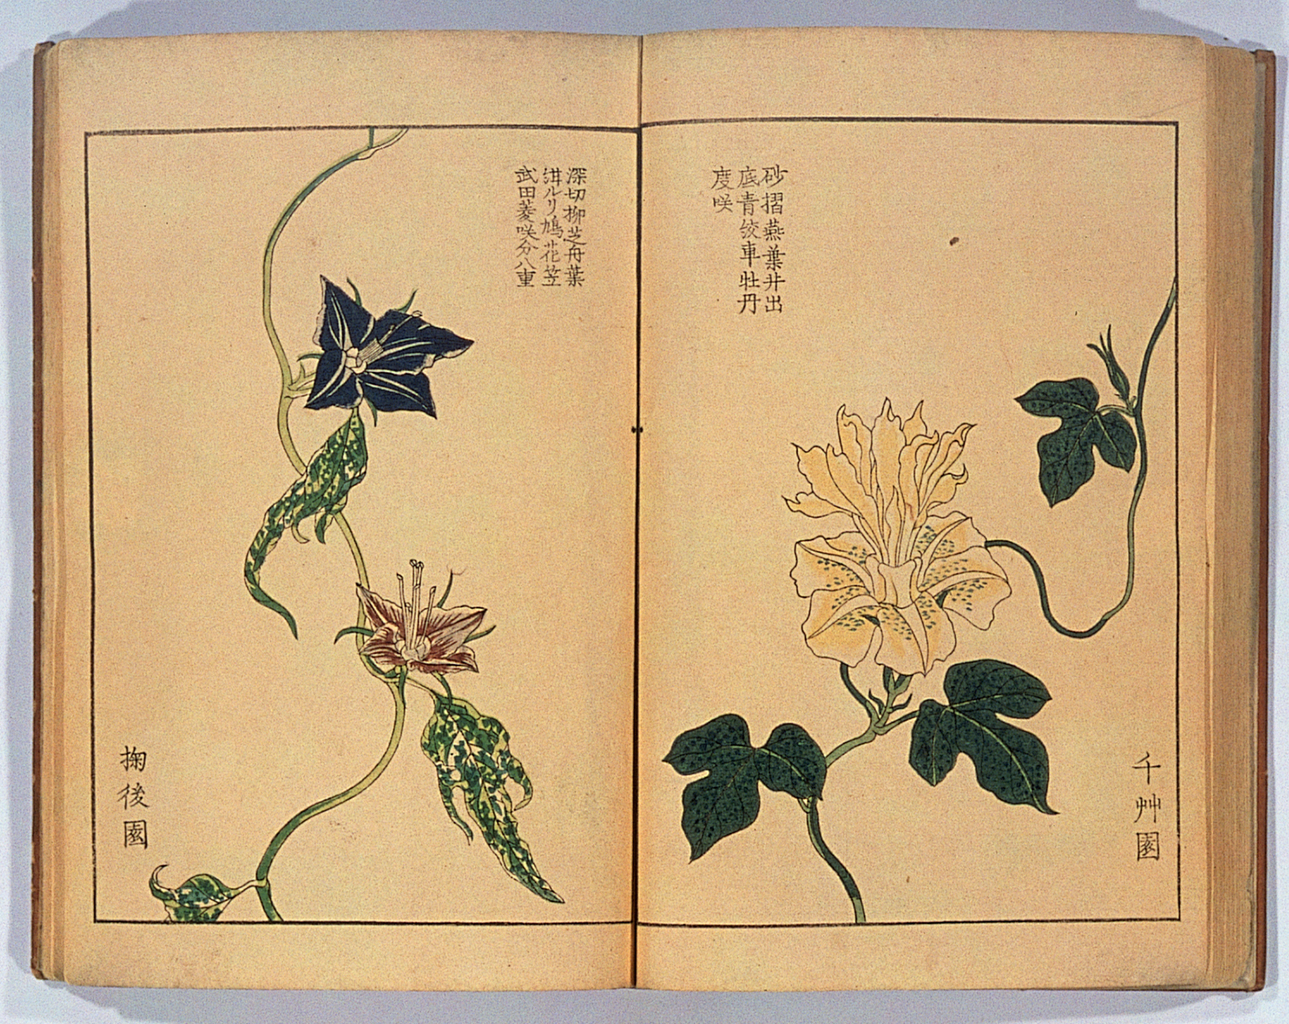 砂摺燕葉井出
底青絞車牡丹
度咲
千艸園
深切柳芝舟葉
ルリ鳩花笠
武田菱咲分八重
掬後園